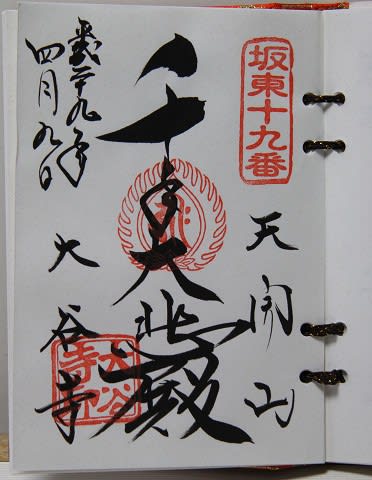 坂東十九番
天開山
千手大悲殿
平成二十九年
四月九日
大谷寺
大谷寺印